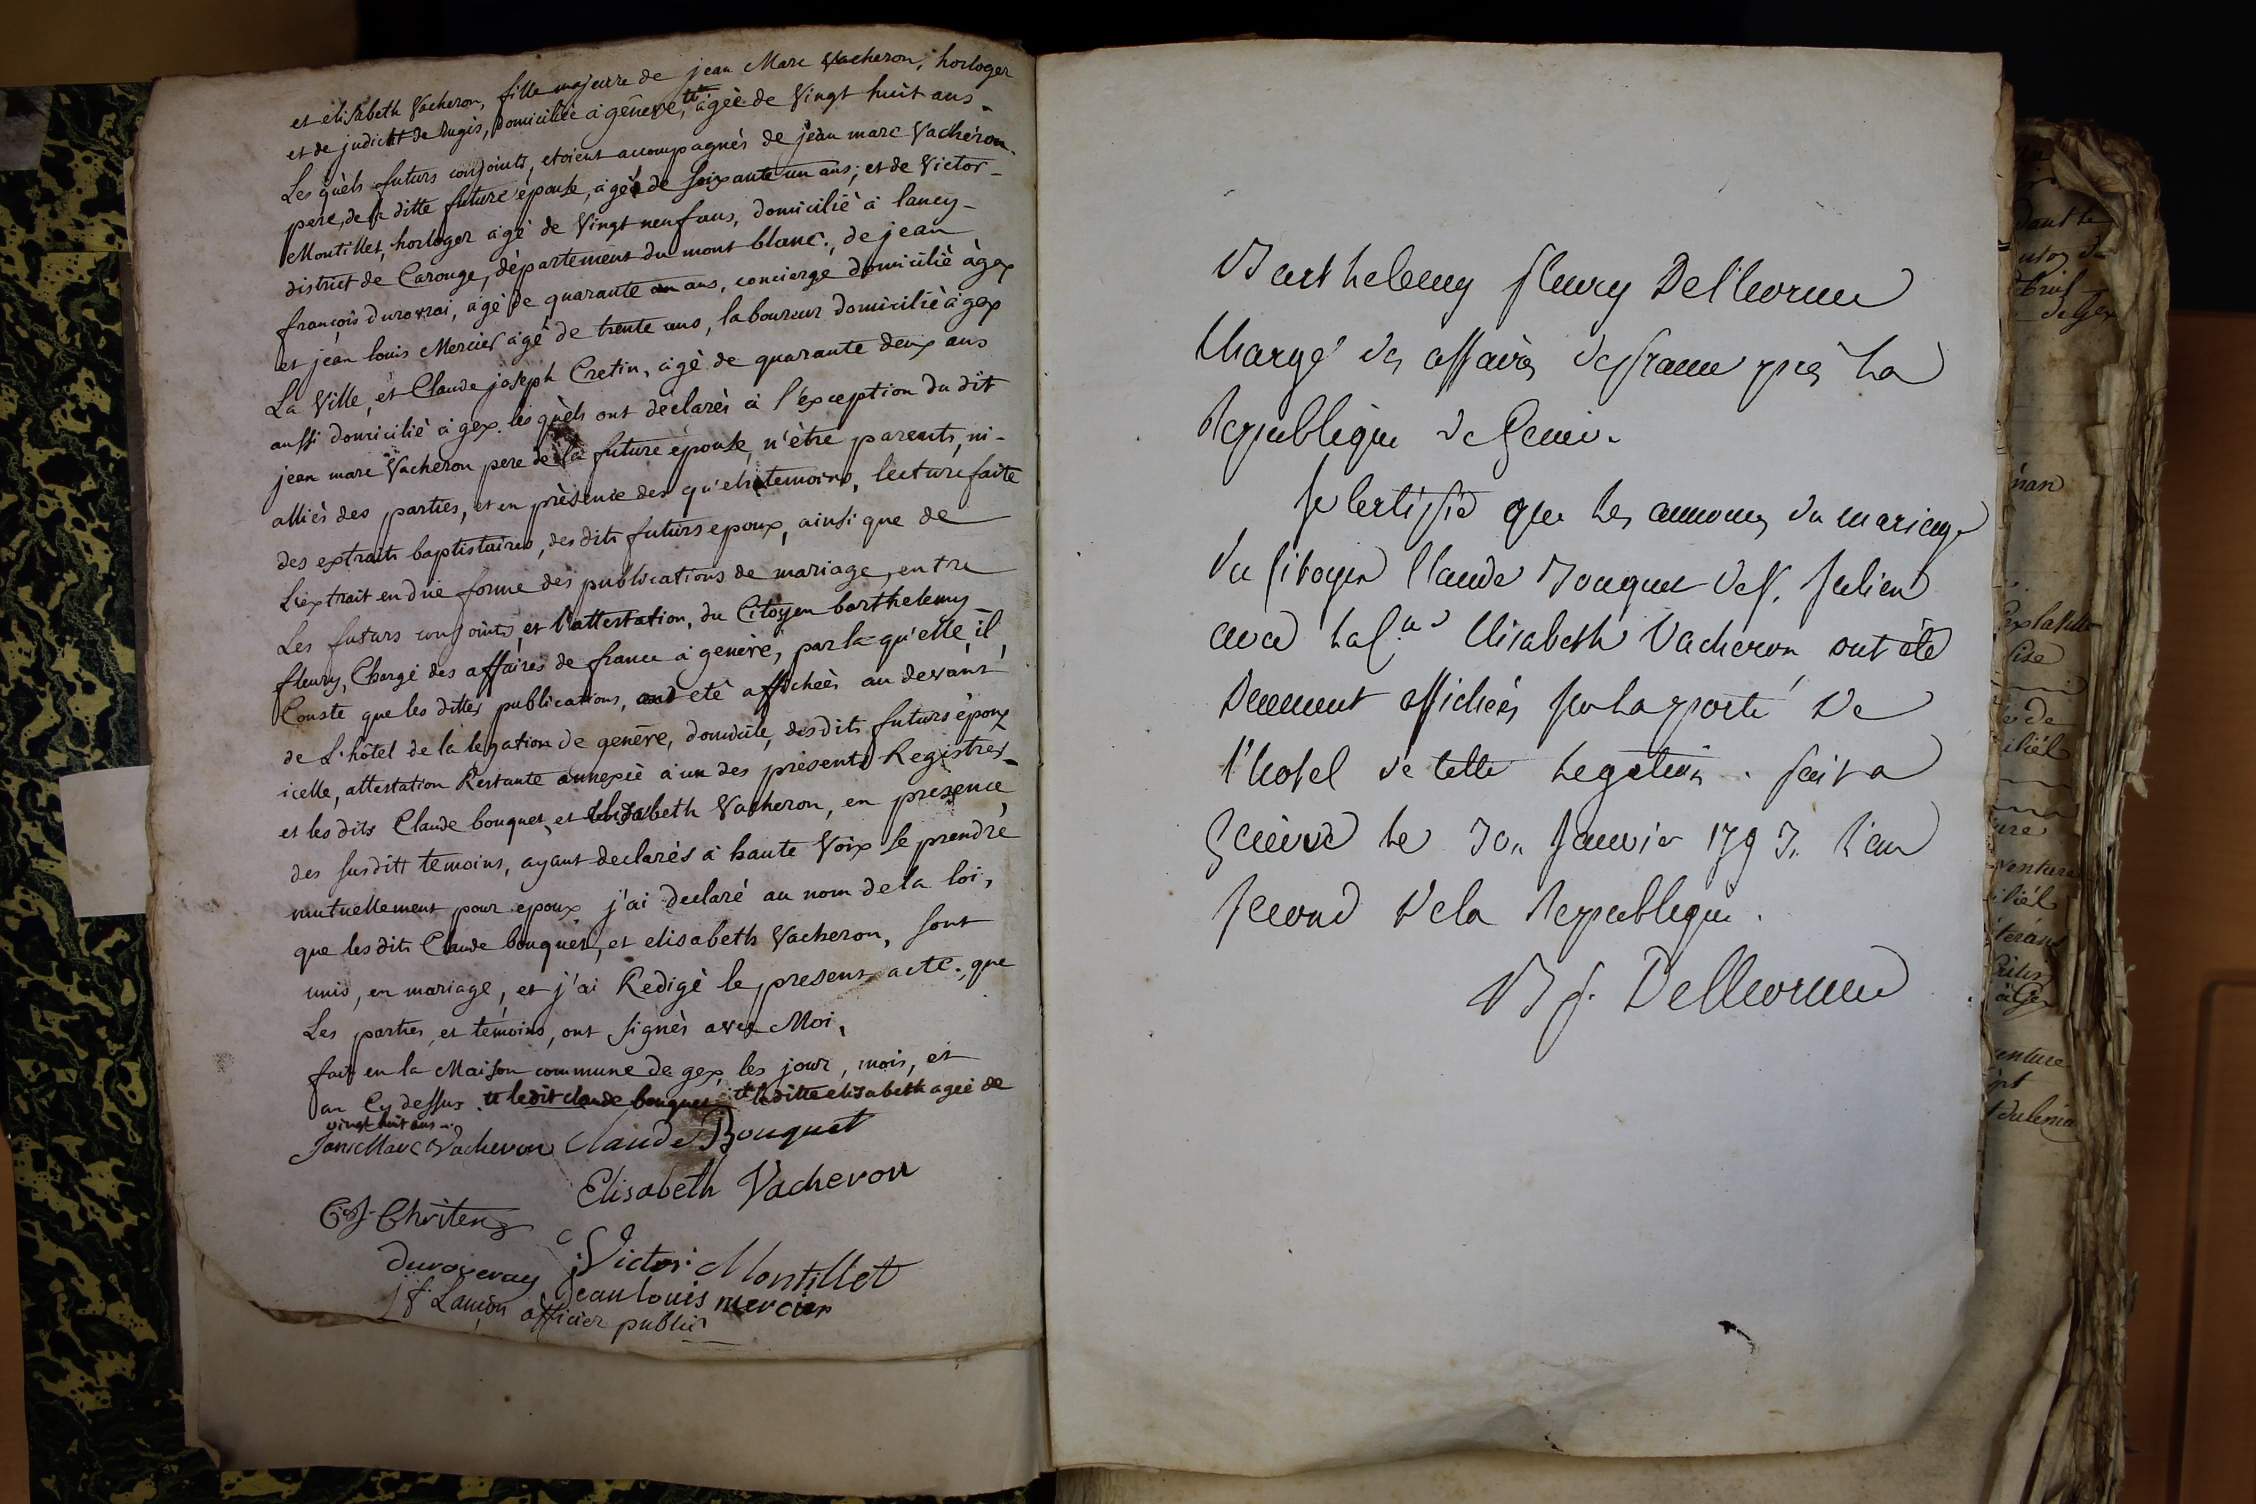 et elisabeth Vacheron, fille majeure de jean Marc Vacheron, horloger
et de judict de Rugès, domiciliée à genève, tt agèe de Vingt huit ans -
Les quèls futurs conjoints, etoient accompagnès de jean marc Vacheron -
pere, de la ditte future épouse, agé de soixante un ans; et de Victor -
Montillet, horloger agé de Vingt neuf ans, domicilié à lancy -
district de Carouge, département du mont blanc., de jean
françois durovrai, agé de quarante ans, concierge domicilié à gex
et jean louis Mercier agé de trente ans, laboureur domicilié à gex
La Ville, et Claude joseph Cretin, agé de quarante deux ans
aussi domicilié à gex. lesquèls ont déclarés à l'éxception du dit
jean marc Vacheron pere de la future épouse, n'ètre parents, ni -
alliés des parties, et en prèsence des qu'els temoins, lecture faite
des extraits baptistaires, des dits futurs epoux, ainsi que de
L'extrait en due forme des publications de mariage, entre
Les futurs conjoints, et l'attestation, du Citoyen barthelemy
fleury, Chargé des affaires de france à genève, par la qu'elle il
Conste que les dittes publications, ont eté affichées au devant
de L'hôtel de la legation de genève, domicile, des dits futurs époux
icelle, attestation Restante annexée à un des présents Registres -
et les dits Claude bouquet, et elisabeth Vacheron, en prèsence
des susditt temoins, ayant declarés à haute Voix se prendre
mutuellement pour epoux j'ai declaré au nom de la loi,
que les dits Claude bouquet, et elisabeth Vacheron, sont
unis, en mariage, et j'ai Redigé le present acte., que
Les parties, et témoins, ont signés avec Moi,
fait en la Maison commune de gex, les jour, mois, et
an Cy dessus. tt ledit claude bouquet tt la ditte elisabeth ageé de
vingt huit ans
Jean Marc Vacheron Claude Bouquet
Elisabeth Vacheron
Victor Montillet
duroveray
jean louis mercier
officier public
Barthelemy fleury Delleorme
Chargé des affaires de france près La
Republique de Geneve.
Je Certiffie que Les annonces du mariage
du Citoyen Claude Bouquet de St. Julien
avec La Cne Elisabeth Vacheron ont été
Deuement affichées sur la porte De
l'hotel de cette Legation. fait a
Genève Le 30. Janvier 1793. L'an
second De la Republique.
B f. Delleorme